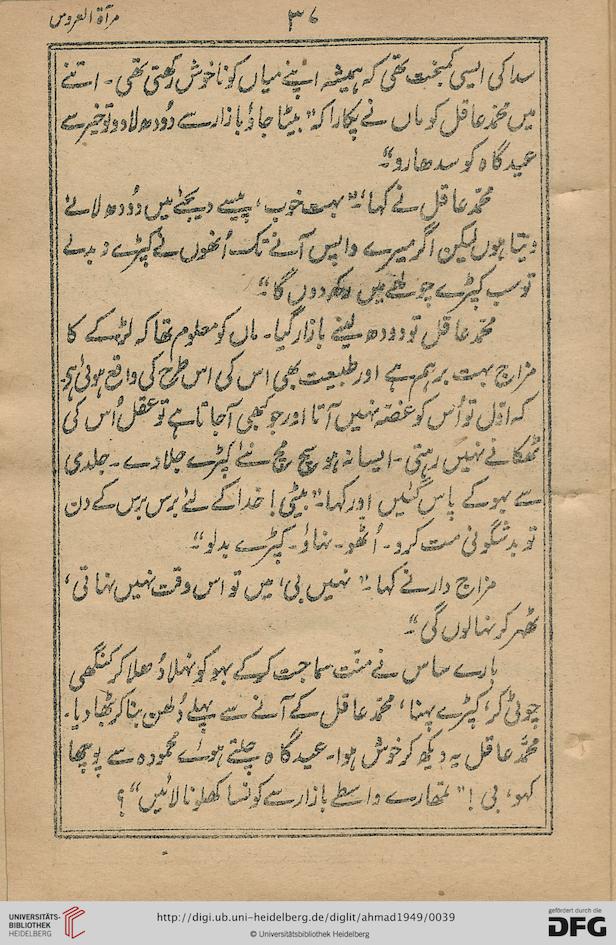 مرآۃ العروس
۳۷
سدا کی ایسی کمبخت تھی کہ ہمیشہ اپنے میاں کو ناخوش رکھتی تھی۔ اتنے
میں محمّد عاقل کو ماں نے پکارا کہ "بیٹا جاؤ بازار سے دُودھ لادو تو خیر سے
عیدگاہ کو سدھارو"۔
محمّد عاقل نے کہا، "بہت خوب، پیسے دیجئے میں دُودھ لائے
دیتا ہوں لیکن اگر میرے واپس آنے تک اُنھوں نے کپڑے نہ بدلے
تو سب کپڑے چولھے میں رکھ دوں گا"۔
محمّد عاقل تو دودھ لینے بازار گیا۔ ماں کو معلوم تھا کہ لڑکے کا
مزاج بہت برہم ہے اور طبیعت بھی اس کی اس طرح کی واقع ہوئی ہے
کہ اوّل تو اُس کو غصّہ نہیں آتا اور جو کبھی آجاتا ہے تو عقل اُس کی
ٹھکانے نہیں رہتی۔ ایسا نہ ہو سچ مچ نئے کپڑے جلا دے۔ جلدی
سے بہو کے پاس گئیں اور کہا۔ "بیٹی! خدا کے لئے برس برس کے دن
تو بدشگونی مت کرو۔ اُٹھو۔ نہاؤ۔ کپڑے بدلو"۔
مزاج دار نے کہا۔ "نہیں بی، میں تو اس وقت نہیں نہاتی،
ٹھہر کر نہالوں گی"۔
بارے ساس نے منّت سماجت کرکے بہو کو نہلا دُھلا کر کنگھی
چوٹی کر، کپڑے پہنا، محمّد عاقل کے آنے سے پہلے دُلھن بنا کر بٹھا دیا۔
محمّد عاقل یہ دیکھ کر خوش ہوا۔ عیدگاہ چلتے ہوئے محمودہ سے پوچھا
کہو، بی! "تمھارے واسطے بازار سے کونسا کھلونا لائیں"؟
UNIVERSITÄTS-
BIBLIOTHEK
HEIDELBERG
http://digi.ub.uni-heidelberg.de/diglit/ahmad1949/0039
© Universitätsbibliothek Heidelberg
gefördert durch die
DFG